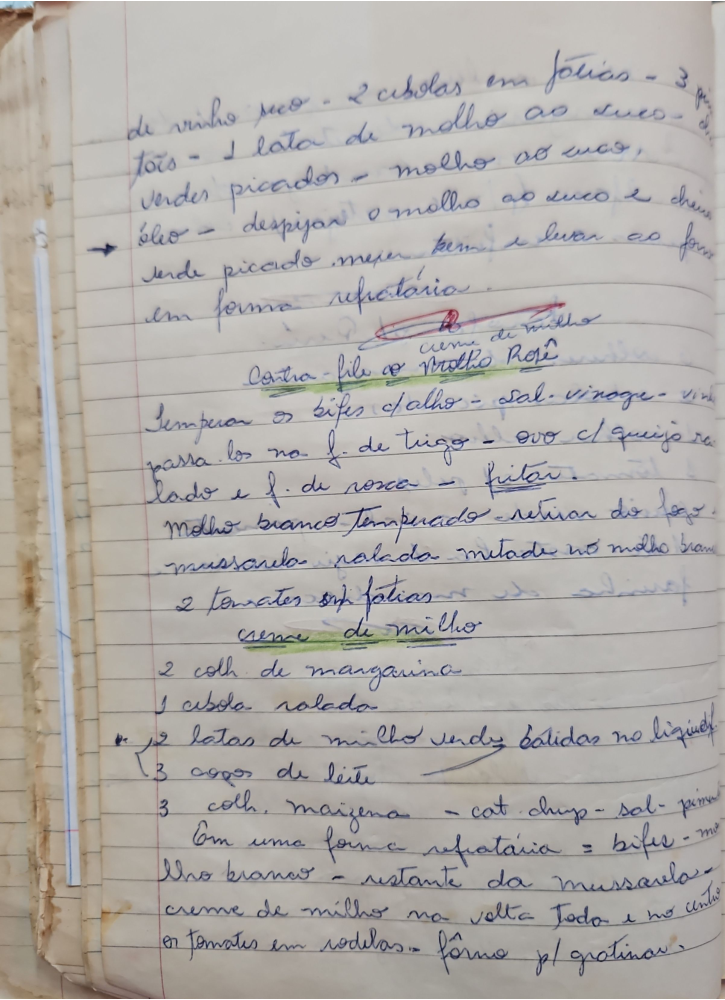 de vinho seco - 2 cebolas em fátias - 3
tois - 1 lata de molho ao suco -
verdes picados - molho ao suco,
óleo - despejar o molho ao suco e
verde picado. mexer bem e levar ao
em forma refratária.
creme de milho
Contra-filé ao Molho Rosê
Temperar os bifes c/ alho - sal - vinagre -
passa-los na f. de trigo - ovo c/ queijo ra
lado e f. de rosca - fritar.
Molho branco temperado - retirar do fogo.
mussarela ralada metade no molho
2 tomates em fátias
creme de milho
2 colh. de margarina
1 cebola ralada
2 latas de milho verde bátidas no
3 copos de leite
3 colh. maizena - cat. chup - sal -
Em uma forma refratária = bifes - mo
lho branco - restante da mussarela -
creme de milho na volta toda e no centro
os tomates em rodelas - fôrno p/ gratinar.